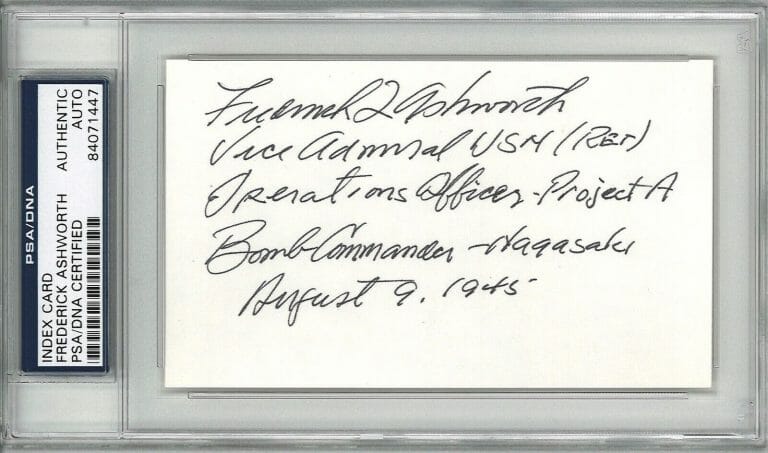 PSA/DNA
INDEX CARD
FREDERICK ASHWORTH
PSA/DNA CERTIFIED
AUTHENTIC
AUTO
84071447
Frederick L Ashworth
Vice Admiral USN (Ret)
Operations Officer - Project A
Bomb Commander - Nagasaki
August 9, 1945